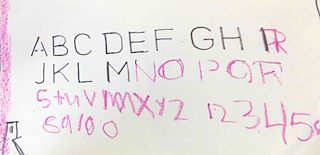 ABC DEF GH IR
JKL MNO PQR
S+uVWXYZ 12345
89100